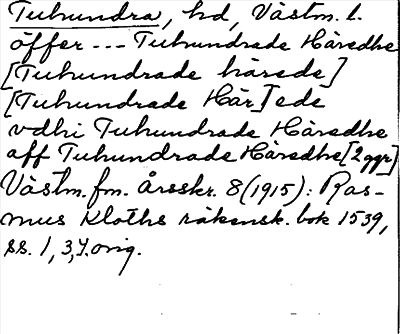 Tuhundra, hd, Västm. l.
öffer --- Tuhundrade Häredhe
[Tuhundrade härede]
[Tuhundrade Här]ede
vdhi Tuhundrade Häredhe
aff Tuhundrade Häredhe [2 ggr]
Västm. fm. Årsskr. 8 (1915): Ras-
mus Kloths räkensk. bok 1539,
ss. 1, 3, 7. orig.